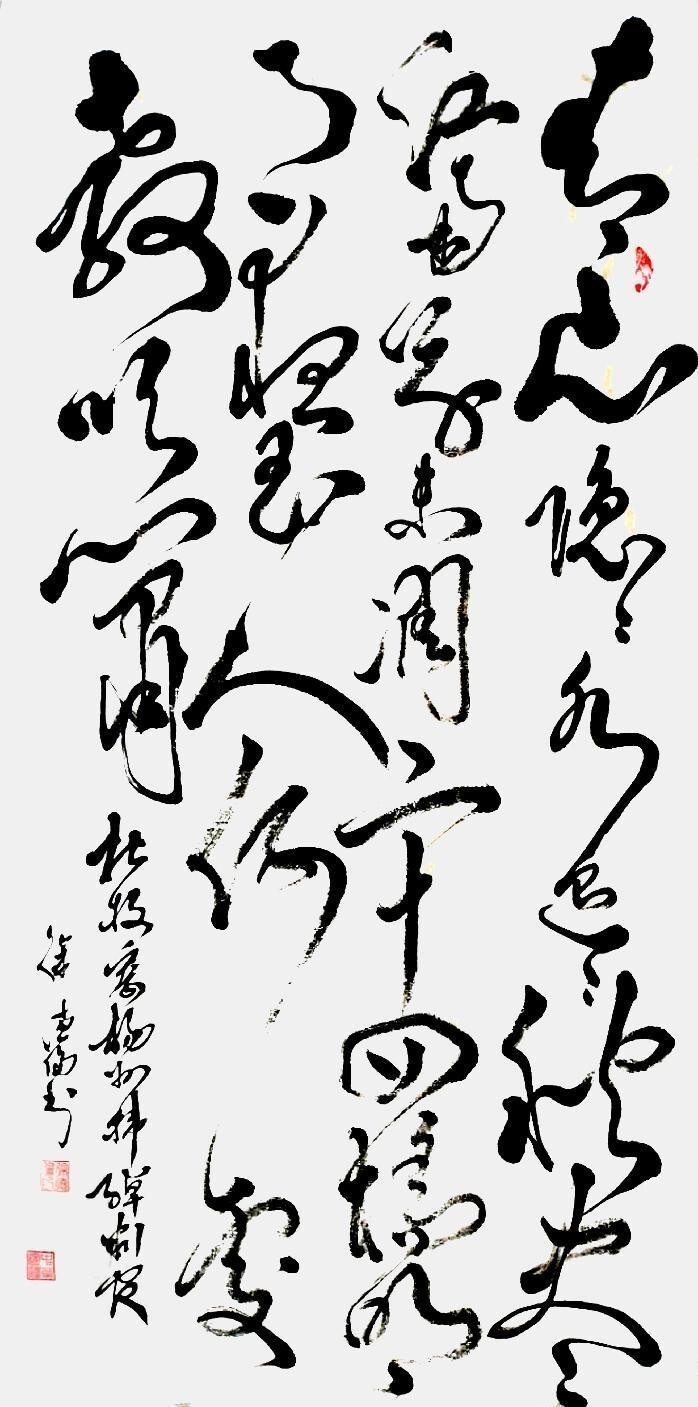 青山隐隐水迢迢秋尽
江南草未凋二十四橋明
月夜玉人何处
教吹箫
杜牧寄揚州韩绰判官
徐
书